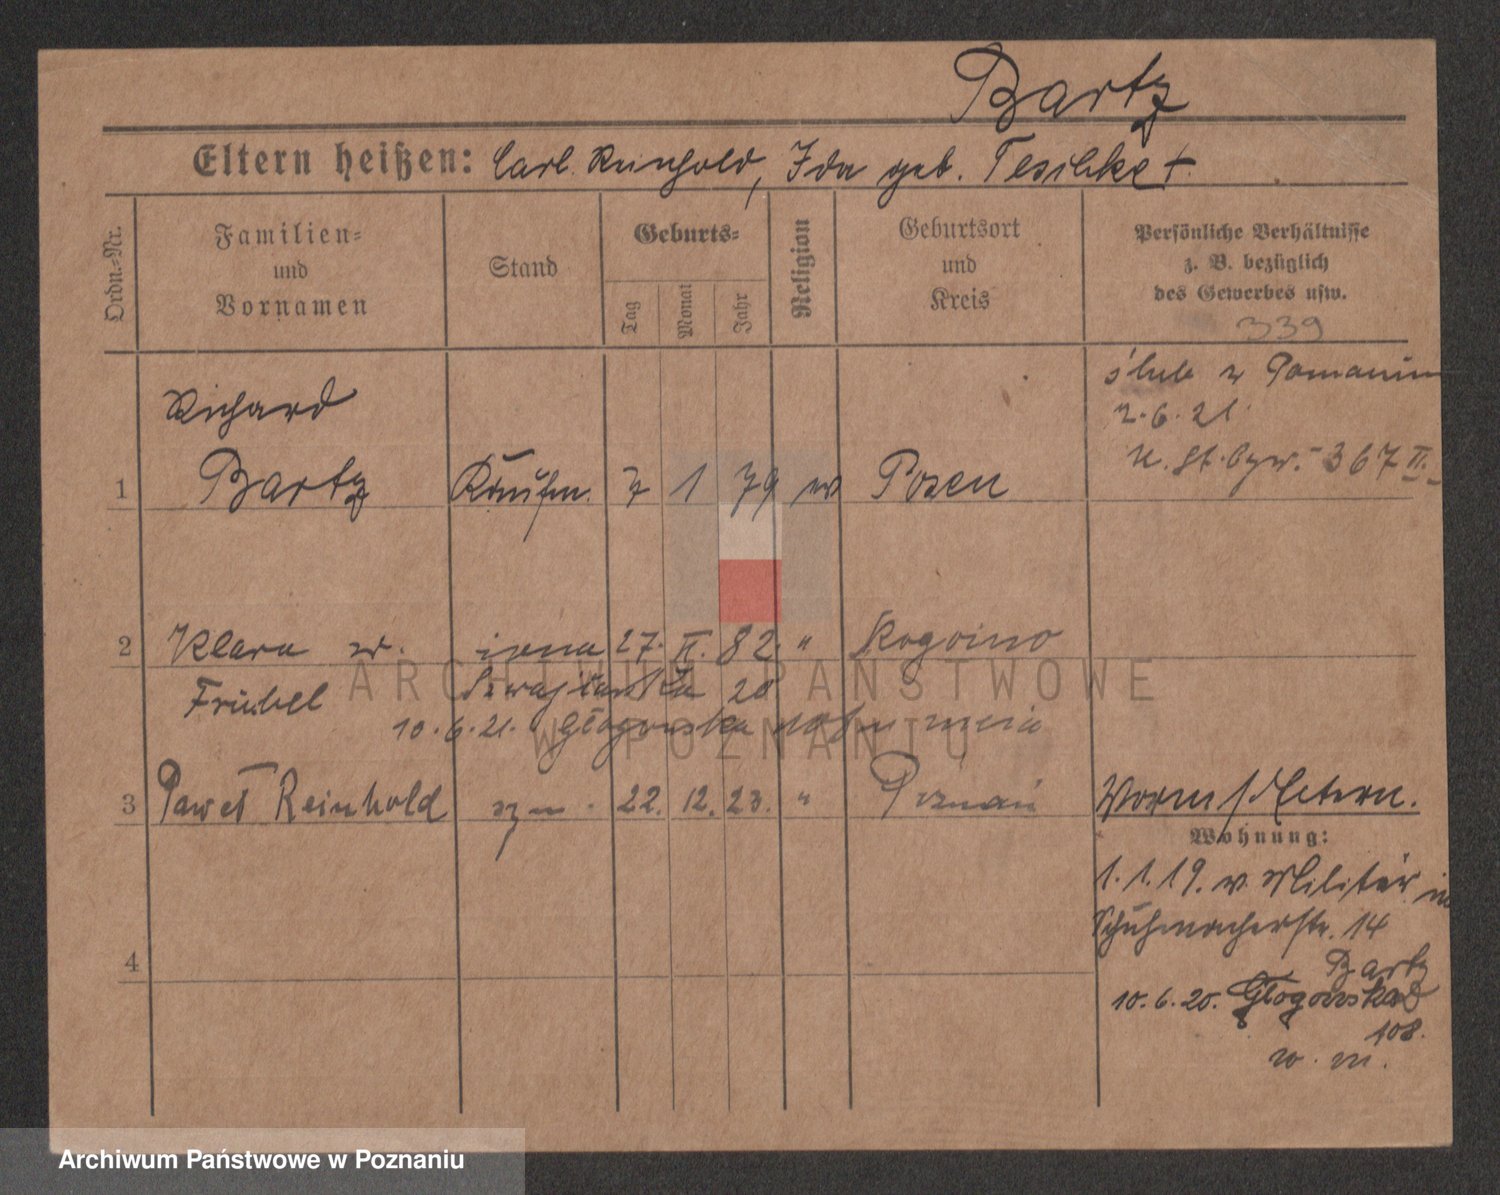 Bartz
Eltern heißen: Carl Reinhold, Ida geb. Teschke +
Ordn.-Nr.
Familien-
und
Vornamen
Stand
Geburts-
Tag
Monat
Jahr
Religion
Geburtsort
und
Kreis
Persönliche Verhältnisse
z. B. bezüglich
des Gewerbes usw.
339
ślub w Poznaniu
2.6.21.
U. St. 367 II.
Richard
1 Bartz Kaufm. 7 1 79 ev Posen
2 Klara żona 27. II. 82. " Rogoźno
Frübel 20
10.6.21. Głogowska
3 Paweł Reinhold syn. 22. 12. 23. " Poznań
Worm s/Eltern.
Wohnung:
1.1.19. v. Militär in
Schuhmacherstr. 14
Bartz
10.6.20. Głogowska
108.
w. m.
4
ARCHIWUM PAŃSTWOWE
W POZNANIU
Archiwum Państwowe w Poznaniu